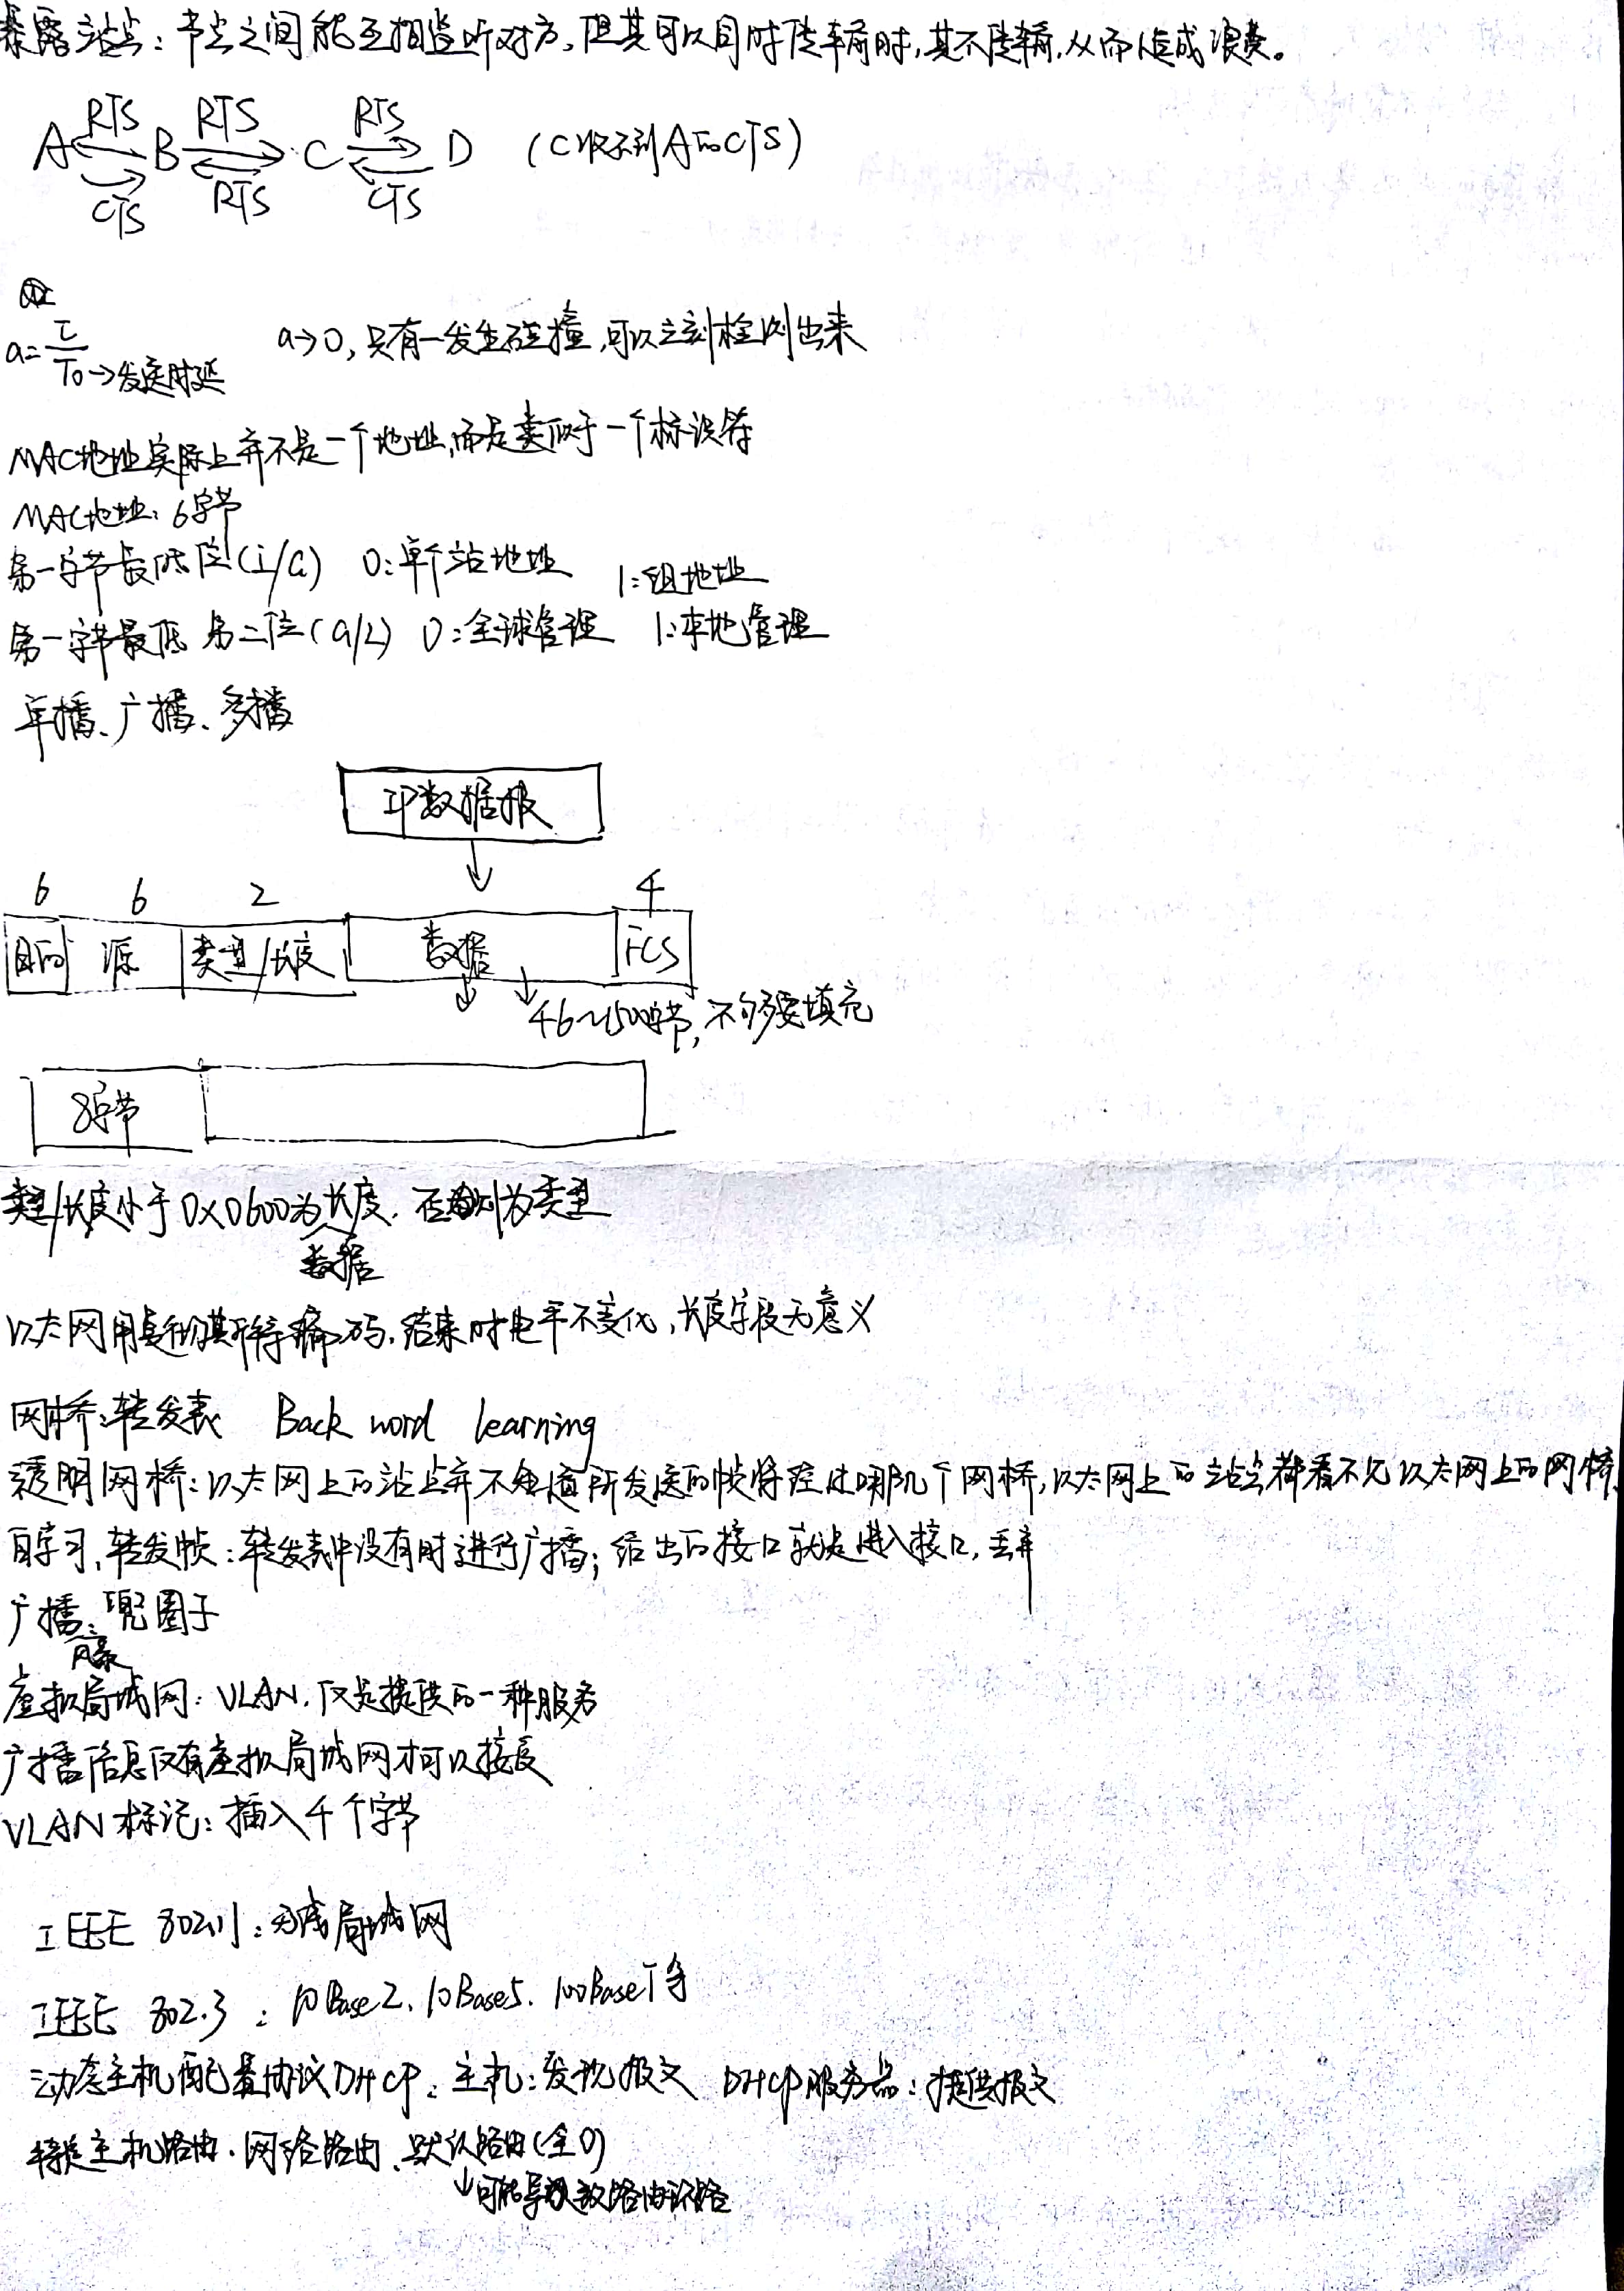 暴露站点：节点之间能互相监听对方，但其可以同时传输时，其不传输，从而造成浪费。
RTS RTS RTS
A B C D （C收不到A的CTS）
CTS RTS CTS
a=τ/T0→发送时延 a→0，只有一发生碰撞，可以立刻检测出来
MAC地址实际上并不是一个地址，而是类似于一个标识符
MAC地址：6字节
第一字节最低位(I/G) 0：单个站地址 1：组地址
第一字节最低第二位(G/L) 0：全球管理 1：本地管理
单播、广播、多播
IP数据报
6 6 2 4
目的 源 类型/长度 数据 FCS
46~1500字节，不够要填充
8字节
类型/长度小于0x0600为长度，否则为类型
数据
以太网用曼彻斯特编码，结束时电平不变化，长度字段无意义
网桥：转发表 Back word learning
透明网桥：以太网上的站点并不知道所发送的帧将经过哪几个网桥，以太网上的站点都看不见以太网上的网桥
自学习，转发帧：转发表中没有时进行广播；给出的接口就是进入接口，丢弃
广播：兜圈子
风暴
虚拟局域网：VLAN，仅是提供的一种服务
广播信息仅有虚拟局域网才可以接受
VLAN标记：插入4个字节
IEEE 802.11：无线局域网
IEEE 802.3：10Base2、10Base5、100BaseT等
动态主机配置协议DHCP：主机：发现报文 DHCP服务器：提供报文
特定主机路由、网络路由、默认路由(全0)
↓可能导致路由环路